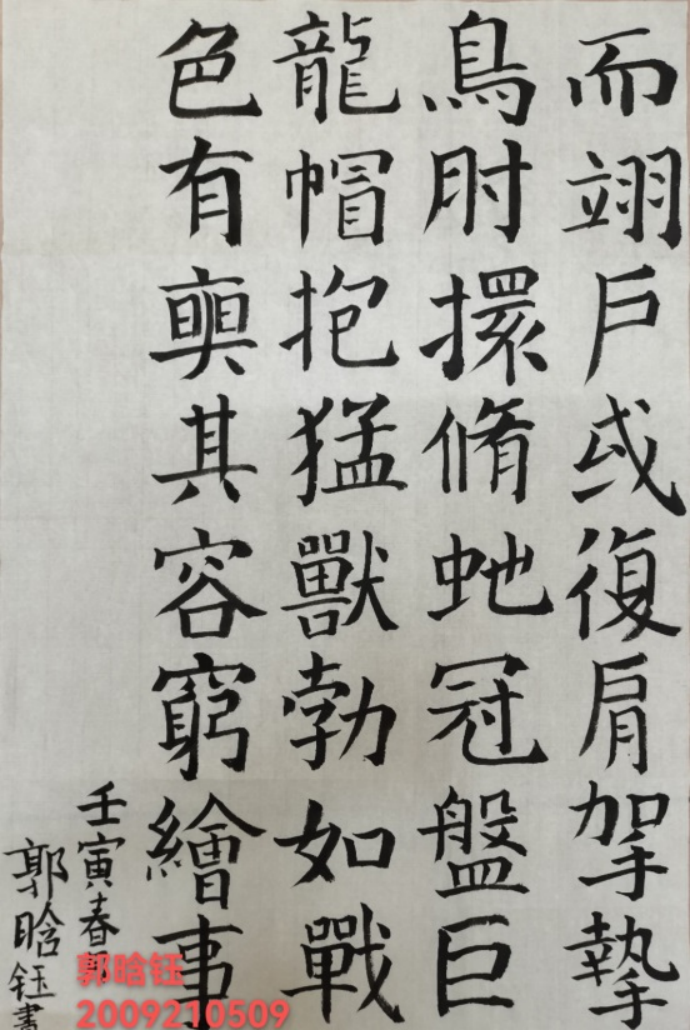 而翊戸或復肩摯
鳥肘擐脩虵冠盤巨
龍帽抱猛獸勃如戰
色有奭其容窮繪事
壬寅春
郭晗鈺書
郭晗钰
2009210509